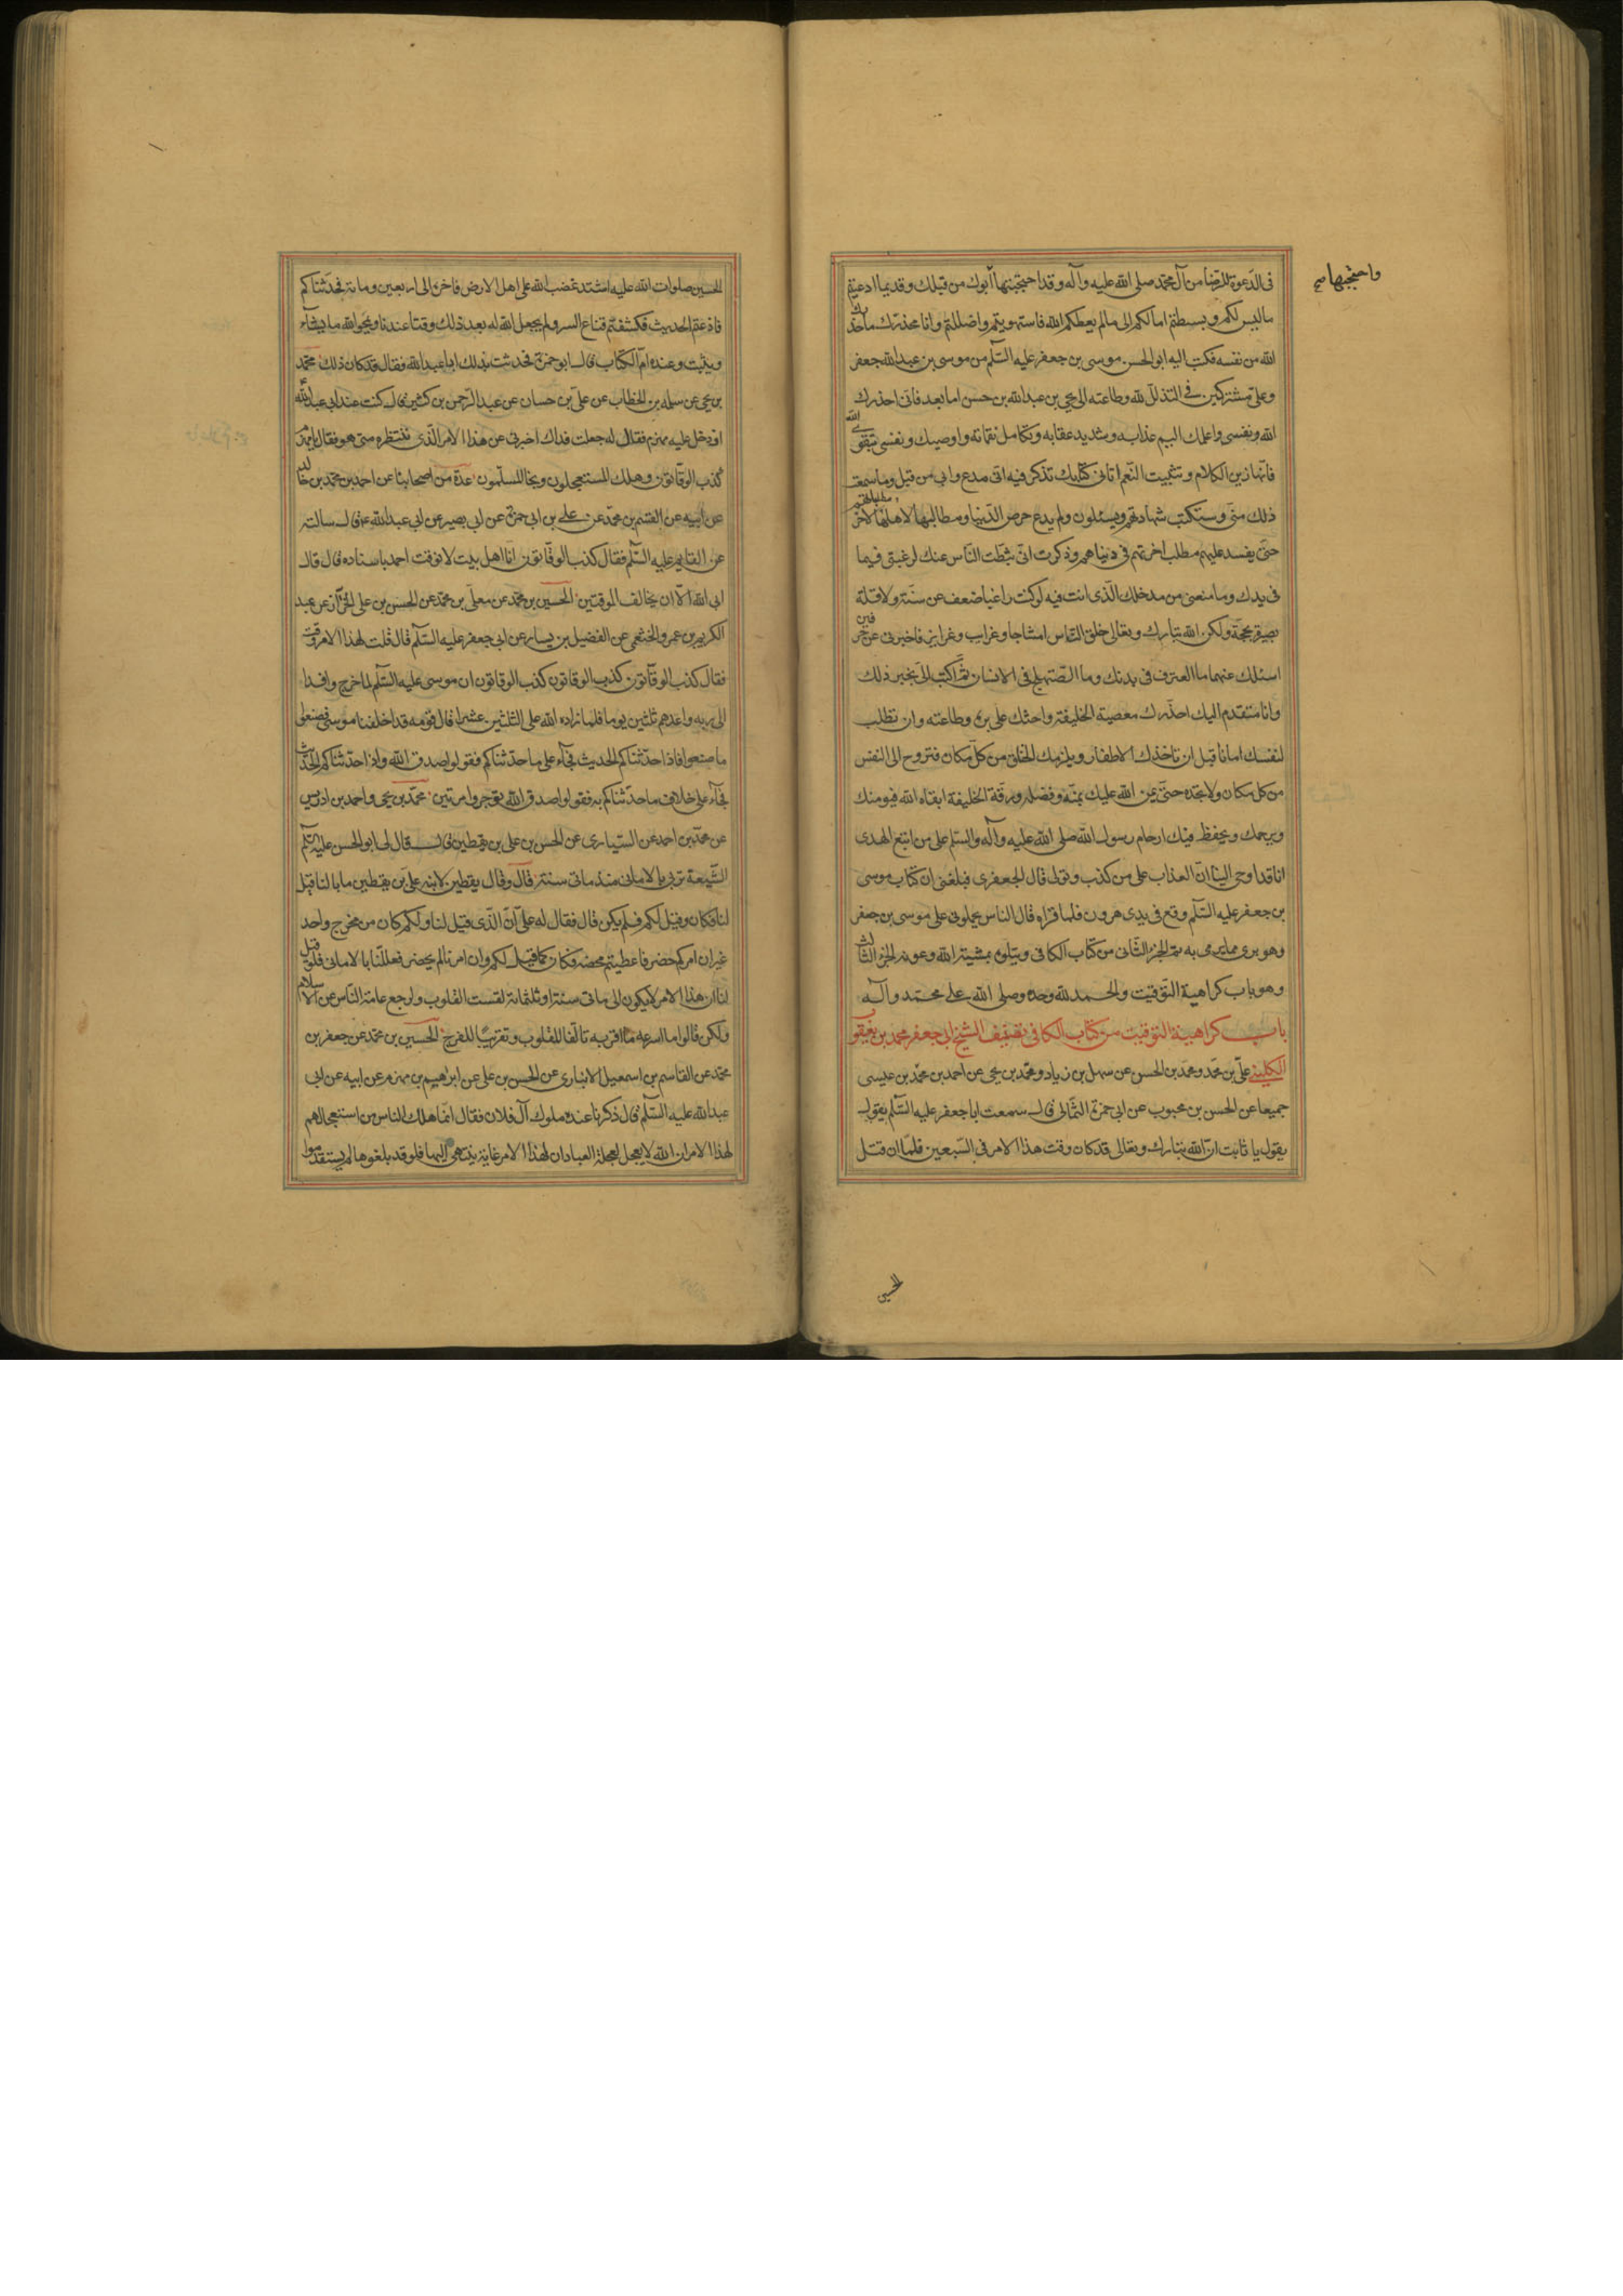 واحتجبها
فى الدعوة للرضا من آل محمد صلى الله عليه وآله وقد احتجبتها أبوك من قبلك وقديما ادعيتم
ماليس لكم وبسطتم امالكم الى مالم يعطكم الله فاستهويتم واضللتم وانا محذرك ما حذرك
الله من نفسه فكتب اليه ابو الحسن موسى بن جعفر عليه السلم من موسى بن عبد الله جعفر
وعلى مشتركين فى التذلل لله وطاعته الى يحيى بن عبد الله بن حسن اما بعد فانى احذرك
الله ونفسى واعلمك اليم عذابه وشديد عقابه وتكامل نقماته واوصيك ونفسى بتقوى الله
فانها زين الكلام وتثبيت النعم اتانى كتابك تذكر فيه انى مدع وابى من قبل وما سمعت
ذلك منى وستكتب شهادتهم ويسئلون ولم يدع حرص الدنيا ومطالبها لاهلها مطلبا لاخرتهم
حتى يفسد عليهم مطلب اخرتهم فى دنياهم وذكرت انى ثبطت الناس عنك لرغبتى فيما
فى يديك وما منعنى من مدخلك الذى انت فيه لو كنت راغبا ضعف عن سنة ولا قلة
بصيرة بحجة ولكن الله تبارك وتعالى خلق الناس امشاجا وغرايب وغرايز فاخبرنى عن حرفين
اسئلك عنهما ما العترف فى بدنك وما الصهلج فى الانسان ثم اكتب الى بخبر ذلك
وانا متقدم اليك احذرك معصية الخليفة واحثك على بره وطاعته وان تطلب
لنفسك امانا قبل ان تاخذك الاظفار ويلزمك الخناق من كل مكان فتروح الى النفس
من كل مكان ولا تجده حتى يمن الله عليك بمنه وفضله ورقة الخليفة ابقاه الله فيومنك
ويرحمك ويحفظ فيك ارحام رسول الله صلى الله عليه وآله والسلم على من اتبع الهدى
انا قد اوحى الينا ان العذاب على من كذب وتولى قال الجعفرى فبلغنى ان كتاب موسى
بن جعفر عليه السلم وقع فى يدى هرون فلما قراه قال الناس يحملونى على موسى بن جعفر
وهو برى مما يرمى به تم الجزء الثانى من كتاب الكافى ويتلوه بمشية الله وعونه الجزء الثالث
وهو باب كراهية التوقيت والحمد لله وحده وصلى الله على محمد وآله
باب كراهية التوقيت من كتاب الكافى تصنيف الشيخ ابى جعفر محمد بن يعقوب
الكلينى على بن محمد ومحمد بن الحسن عن سهل بن زياد ومحمد بن يحيى عن احمد بن محمد بن عيسى
جميعا عن الحسن بن محبوب عن ابى حمزة الثمالى قال سمعت ابا جعفر عليه السلم يقول
يقول يا ثابت ان الله تبارك وتعالى قد كان وقت هذا الامر فى السبعين فلما ان قتل
الحسين
الحسين صلوات الله عليه اشتد غضب الله على اهل الارض فاخره الى اربعين ومائة فحدثناكم
فاذعتم الحديث فكشفتم قناع السر ولم يجعل الله له بعد ذلك وقتا عندنا ويمحو الله ما يشآء
ويثبت وعنده ام الكتاب قال ابو حمزة فحدثت بذلك ابا عبد الله فقال قد كان ذلك محمد
بن يحيى عن سلمه بن الخطاب عن على بن حسان عن عبد الرحمن بن كثير قال كنت عند ابى عبد الله
اذ دخل عليه مهزم فقال له جعلت فداك اخبرنى عن هذا الامر الذى ننتظره متى هو فقال يا مهزم
كذب الوقاتون وهلك المستعجلون ونجا المسلمون عدة من اصحابنا عن احمد بن محمد بن خالد
عن ابيه عن القسم بن محمد عن على بن ابى حمزة عن ابى بصير عن ابى عبد الله ع قال سالته
عن القايم عليه السلم فقال كذب الوقاتون انا اهل بيت لا نوقت احمد باسناده قال قال
ابى الله الا ان يخالف الموقتين الحسين بن محمد عن معلى بن محمد عن الحسن بن على الخزاز عن عبد
الكريم بن عمرو الخثعمى عن الفضيل بن يسار عن ابى جعفر عليه السلم قال قلت لهذا الامر وقت
فقال كذب الوقاتون كذب الوقاتون كذب الوقاتون ان موسى عليه السلم لما خرج وافدا
الى ربه واعدهم ثلثين يوما فلما زاده الله على الثلثين عشرا قال قومه قد اخلفنا موسى فصنعوا
ما صنعوا فاذا حدثناكم الحديث فجآء على ما حدثناكم فقولوا صدق الله واذا حدثناكم الحديث
فجآء على خلاف ما حدثناكم به فقولوا صدق الله توجروا مرتين محمد بن يحيى واحمد بن ادريس
عن محمد بن احمد عن السيارى عن الحسن بن على بن يقطين قال قال لى ابو الحسن عليه السلم
الشيعة تربى بالامانى منذ ماتى سنة قال وقال يقطين لابنه على بن يقطين ما بالنا قيل
لنا فكان وقيل لكم فلم يكن قال فقال له على ان الذى قيل لنا ولكم كان من مخرج واحد
غير ان امركم حضر فاعطيتم محضه فكان كما قيل لكم وان امرنا لم يحضر فعللنا بالامانى فلو قيل
لنا ان هذا الامر لا يكون الى ماتى سنة او ثلثمائة لقست القلوب ولرجع عامة الناس عن الاسلام
ولكن قالوا ما اسرعه ما اقربه تالفا لقلوب وتقريبا للفرج الحسين بن محمد عن جعفر بن
محمد عن القاسم بن اسمعيل الانبارى عن الحسن بن على عن ابراهيم بن مهزم عن ابيه عن ابى
عبد الله عليه السلم قال ذكرنا عنده ملوك آل فلان فقال انما هلك الناس من استعجالهم
لهذا الامر ان الله لا يعجل لعجلة العباد ان لهذا الامر غاية ينتهى اليها فلو قد بلغوها لم يستقدموا